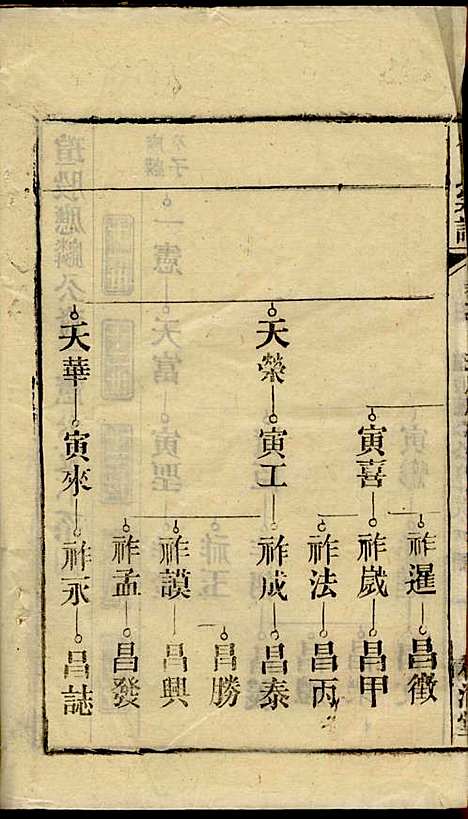 寅喜 祚暹 昌徵
祚歲 昌甲
祚法 昌丙
天榮 寅工 祚成 昌泰
昌勝
祚謨 昌興
祚孟 昌發
天華 寅來 祚永 昌誌